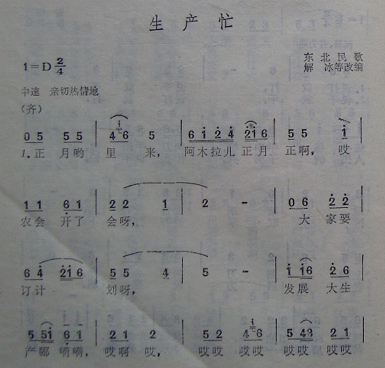 生产忙
1=D 2/4
东北民歌
解冰等改编
中速 亲切热情地
(齐)
0 5 5 5 | 4 6 5 | 6 1 2 4 2 1 6 | 5 5 1
1.正 月哟 里 来, 阿木拉儿 正月 正啊, 哎
1 1 6 1 | 2 2 1 | 2 - | 0 6 2 2
农会 开了 会呀, 大家要
6 4 2 1 6 | 5 5 4 | 5 - | 1 1 6 2 6
订计 划呀, 发展 大生
5 5 1 6 1 | 2 1 2 | 5 2 4 6 | 5 4 3 2 1
产哪 嗬嗬, 哎啊 哎, 哎哎 哎哎 哎哎 哎哎